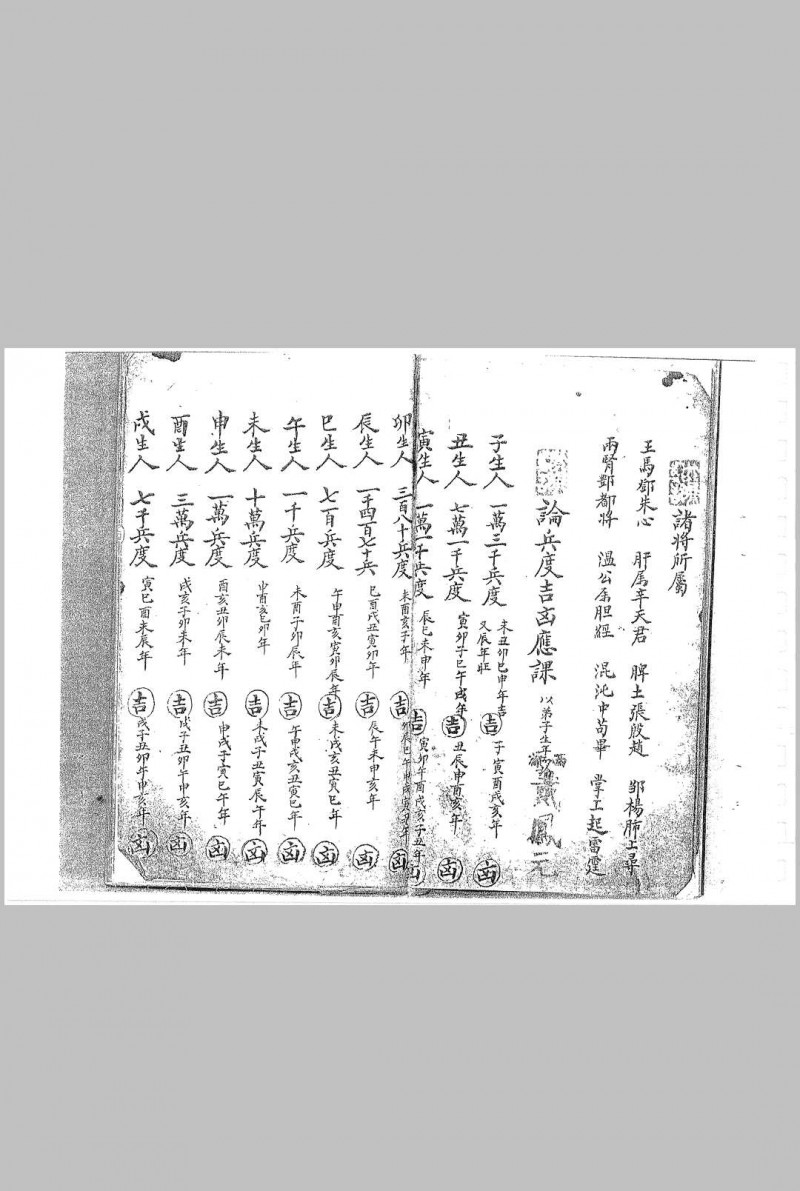 諸將所屬
王馬鄧朱心 肝屬辛天君 脾土張殷趙 鄒楊肺上尋
兩腎酆都將 溫公屬胆經 混沌中苟畢 掌上起雷霆
論兵度吉凶應課 以弟子生年
子生人 一萬三千兵度 未丑卯巳申年吉 又辰年旺 吉 子寅酉戌亥年 凶
丑生人 七萬一千兵度 寅卯子巳午戌年 吉 丑辰申酉亥年 凶
寅生人 一萬一千兵度 辰巳未申年 吉 寅卯午酉戌亥子丑年 凶
卯生人 三百八十兵度 未酉亥子年 吉 凶
辰生人 一千四百七十兵 巳酉戌丑寅卯年 吉 辰午未申亥年 凶
巳生人 七百兵度 午申酉亥寅卯辰年 吉 未戌亥丑寅巳年 凶
午生人 一千兵度 未酉子卯辰年 吉 午申戌亥丑寅巳年 凶
未生人 十萬兵度 申酉亥巳卯年 吉 未戌子丑寅辰午年 凶
申生人 一萬兵度 酉亥丑卯辰未年 吉 申戌子寅巳午年 凶
酉生人 三萬兵度 戌亥子卯未年 吉 戌子丑卯午申亥年 凶
戌生人 七千兵度 寅巳酉未辰年 吉 戌子丑卯午申亥年 凶